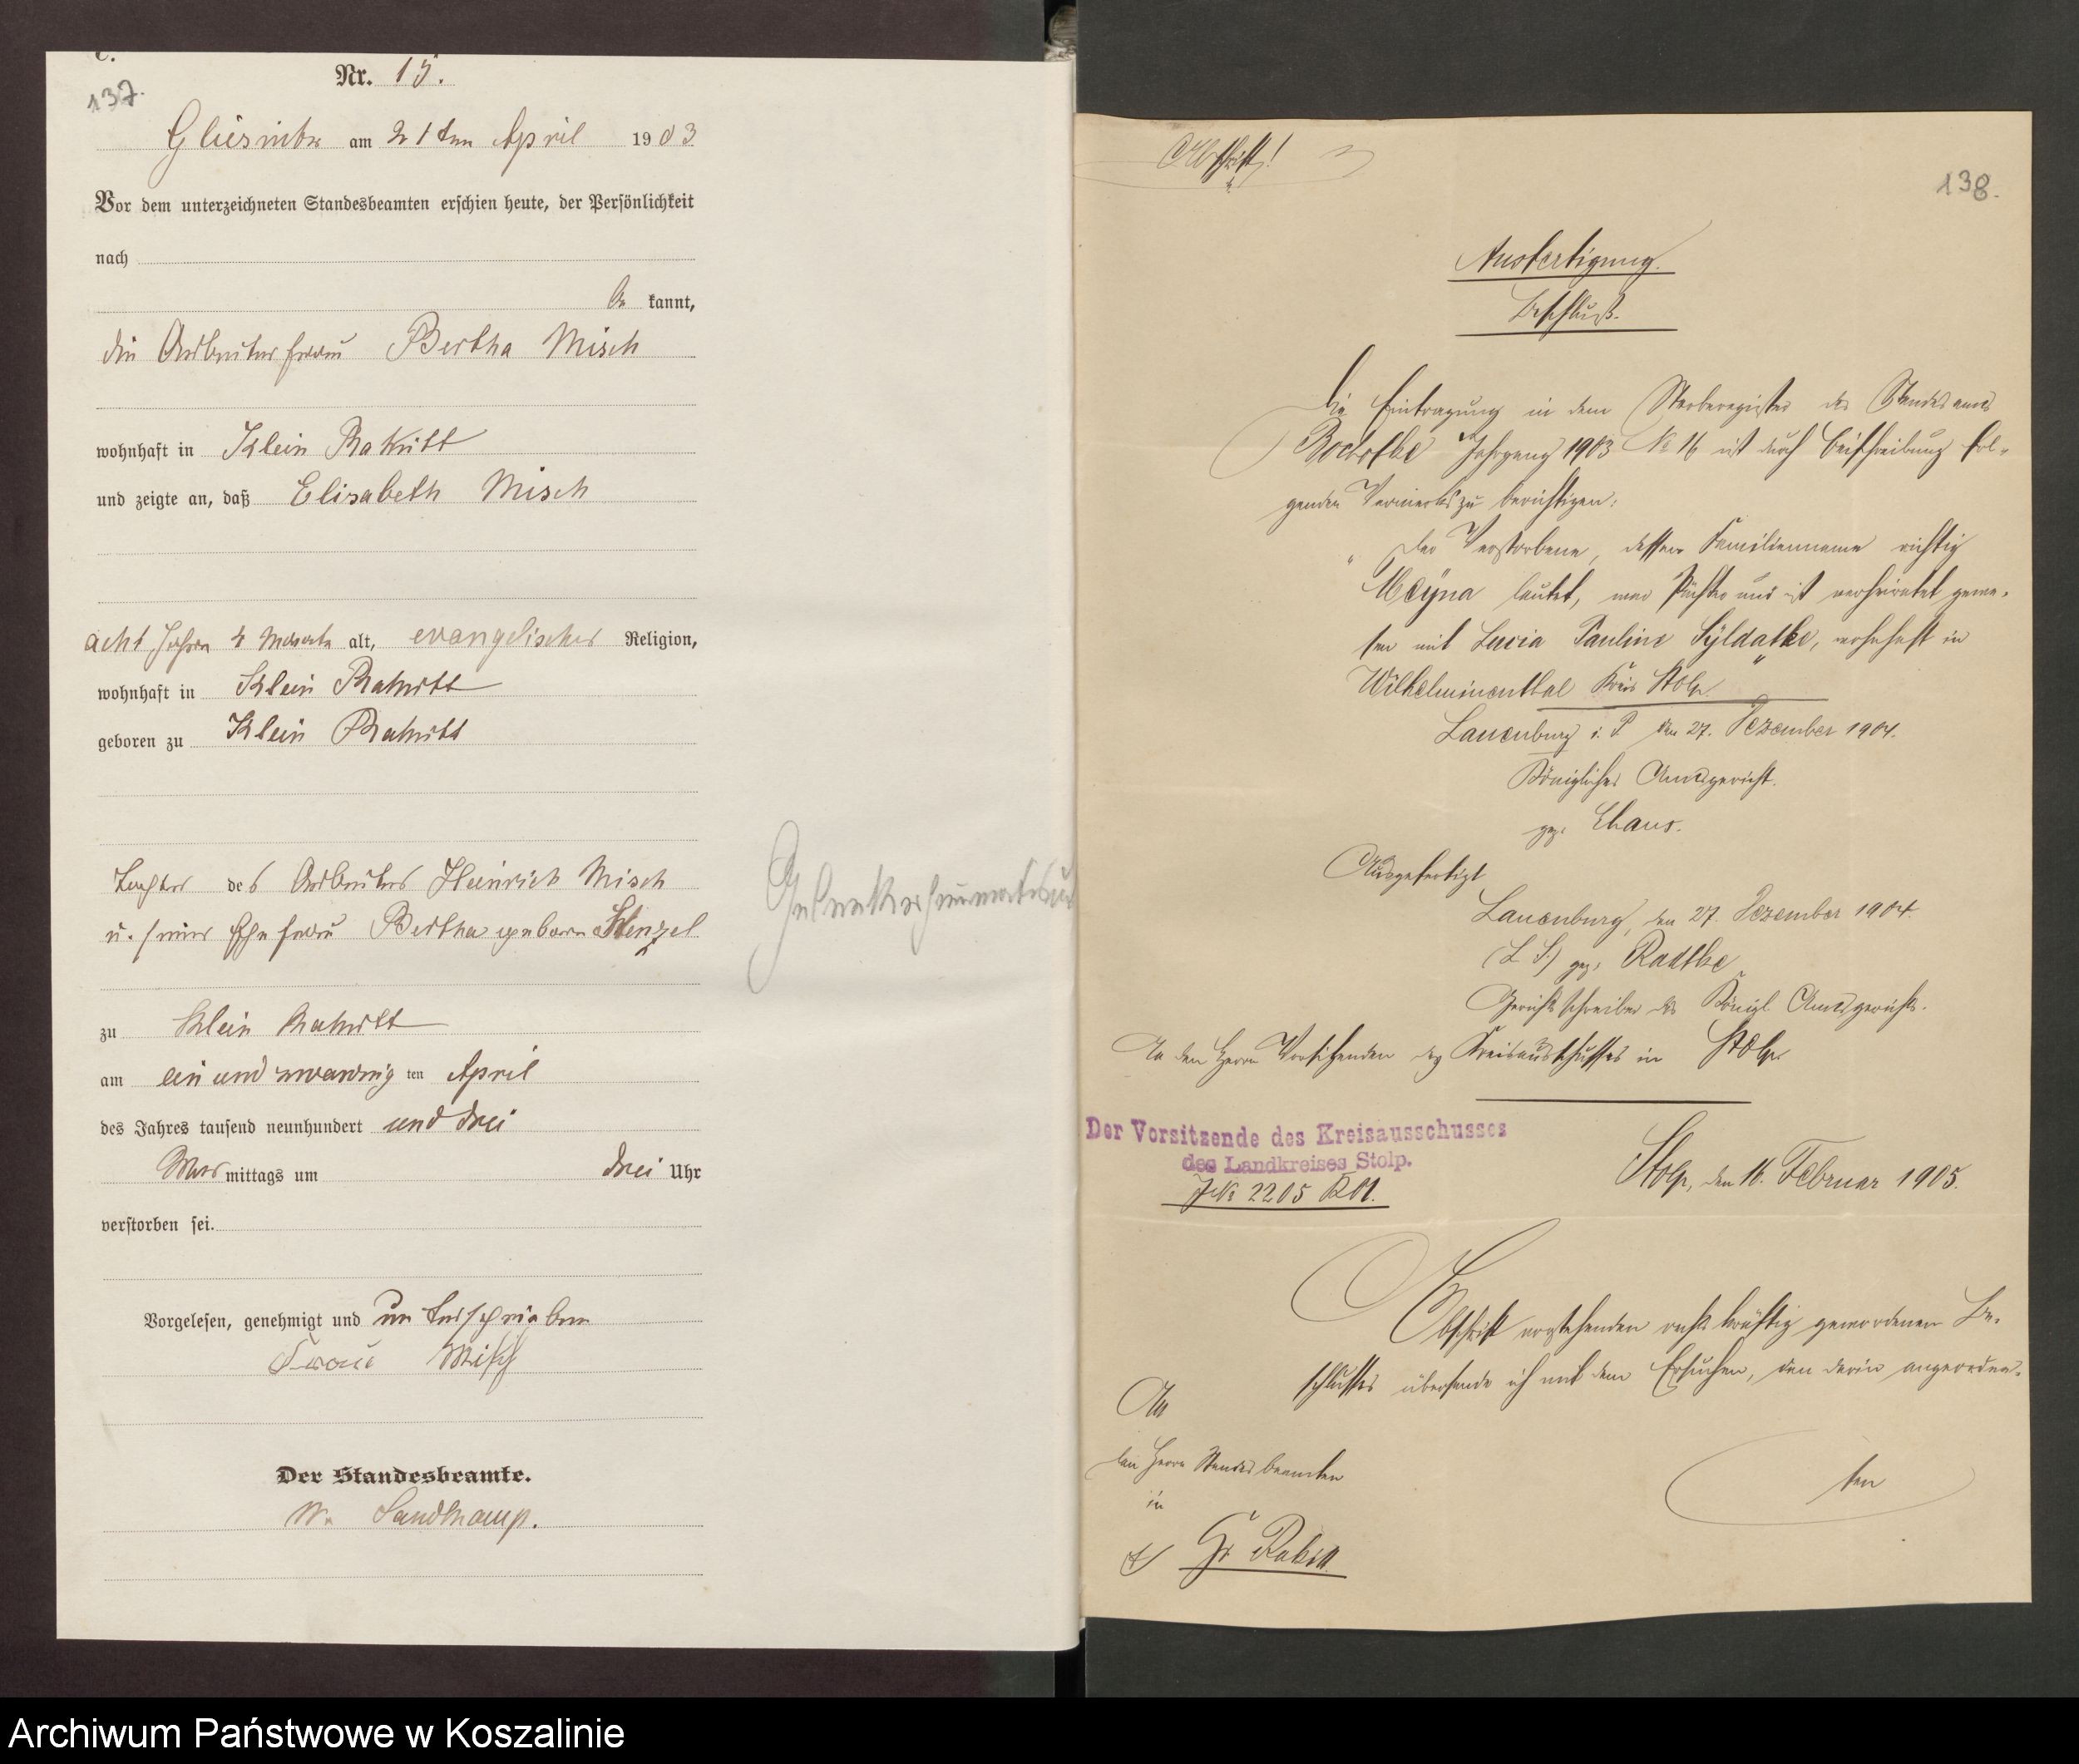 C.
137.
Nr. 15.
Gliesnitz am 21ten April 1903
Vor dem unterzeichneten Standesbeamten erschien heute, der Persönlichkeit
nach
be kannt,
die Arbeiterfrau Bertha Misch
wohnhaft in Klein Rakitt
und zeigte an, daß Elisabeth Misch
acht Jahre 4 Monate alt, evangelischer Religion,
wohnhaft in Klein Rakitt
geboren zu Klein Rakitt
Tochter des Arbeiters Heinrich Misch
u. seiner Ehefrau Bertha geborene Stenzel
zu Klein Rakitt
am ein und zwanzig ten April
des Jahres tausend neunhundert und drei
Vor mittags um drei Uhr
verstorben sei.
Vorgelesen, genehmigt und unterschrieben
Frau Misch
Der Standesbeamte.
W. Sandkamp.
Abschrift!
138.
Ausfertigung.
Beschluß.
Die Eintragung in dem Sterberegister des Standesamts
Jahrgang 1903 No 16 ist durch Beischreibung fol-
genden Vermerks zu berichtigen:
„Der Verstorbene, dessen Familienname richtig
Meyna lautet, war Pächter und ist verheiratet gewe-
sen mit Lucia Pauline Syldatke, wohnhaft in
Wilhelminenthal Kreis Stolp"
Lauenburg i. P. den 27. Dezember 1904.
Königliches Amtsgericht.
gez.
Ausgefertigt
Lauenburg, den 27. Dezember 1904.
(L. S.) gez. Radtke
Gerichtsschreiber des Königl. Amtsgerichts.
An den Herrn Vorsitzenden des Kreisausschusses in Stolp
Der Vorsitzende des Kreisausschusses
des Landkreises Stolp.
J No 2205 KA.
Stolp, den 16. Februar 1905.
Abschrift vorstehenden rechtskräftig gewordenen Be-
schlusses übersende ich mit dem Ersuchen, den darin angeordne-
ten
An
den Herrn Standesbeamten
in
Gr Rakitt
Archiwum Państwowe w Koszalinie